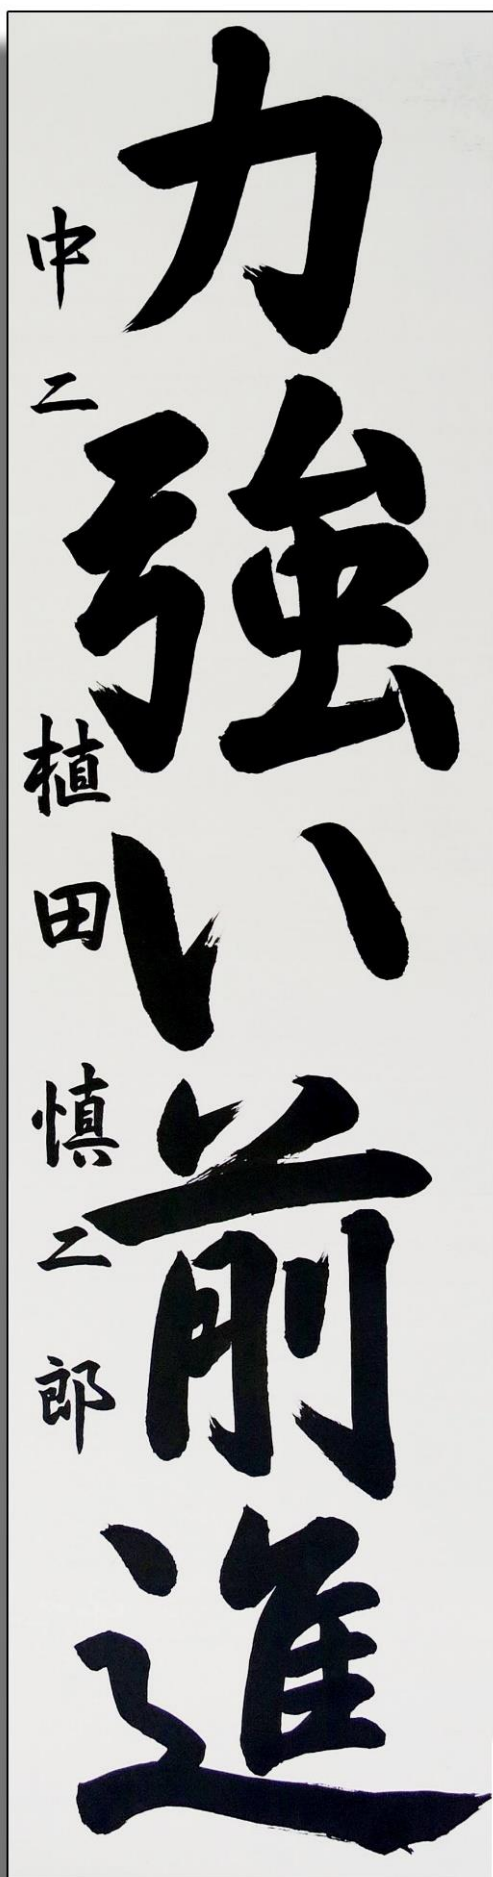 力強い前進
中二 植田慎二郎